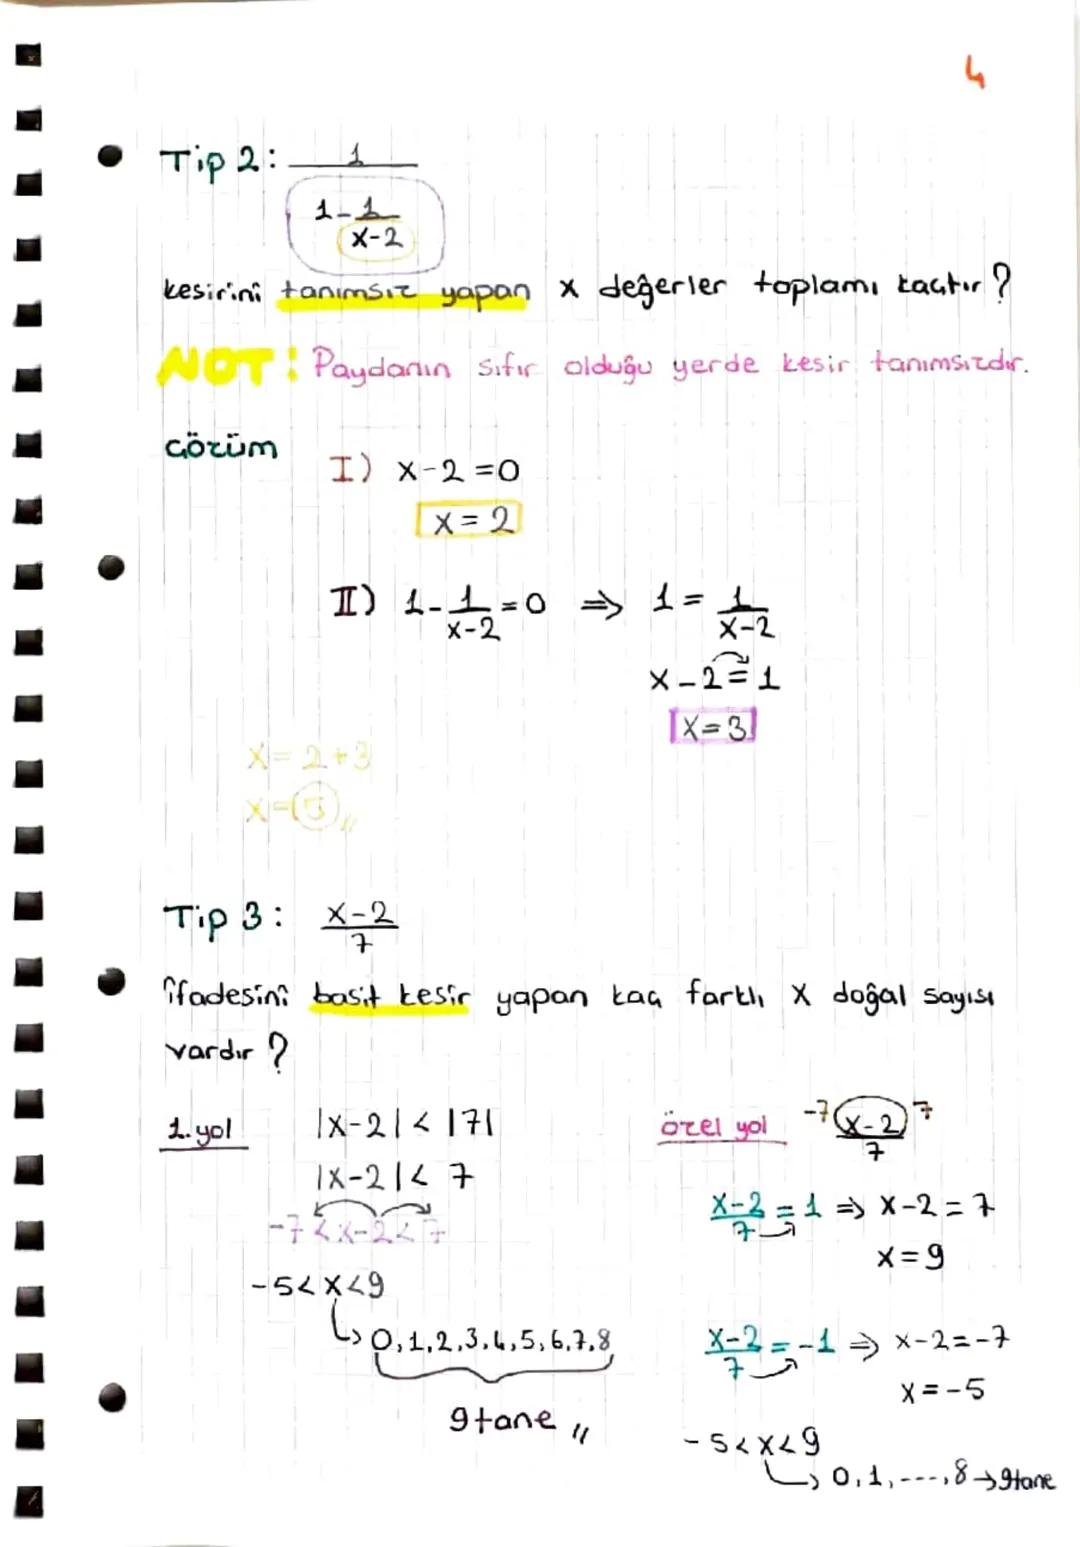 4
Tip 2: 1
1-1
x-2
kesirini tanımsız yapan x değerler toplamı kaçtır?
NOT: Paydanın sıfır olduğu yerde kesir tanımsızdır.
Çözüm
I) x-2=0
x=2
II) 1-1/x-2=0 ⇒ 1=1/x-2
x-2=1
x=3
x=2+3
x=5//
Tip 3: x-2/7
ifadesini basit kesir yapan kaç farklı x doğal sayısı
vardır?
1. yol
|x-2|<|7|
|x-2|<7
-7<x-2<7
-5<x<9
↳ 0,1,2,3,4,5,6,7,8
9tane //
özel yol -7 x-2/7 7
x-2/7=1 ⇒ x-2=7
x=9
x-2/7=-1 ⇒ x-2=-7
x=-5
-5<x<9
↳ 0,1,---,8→9tane